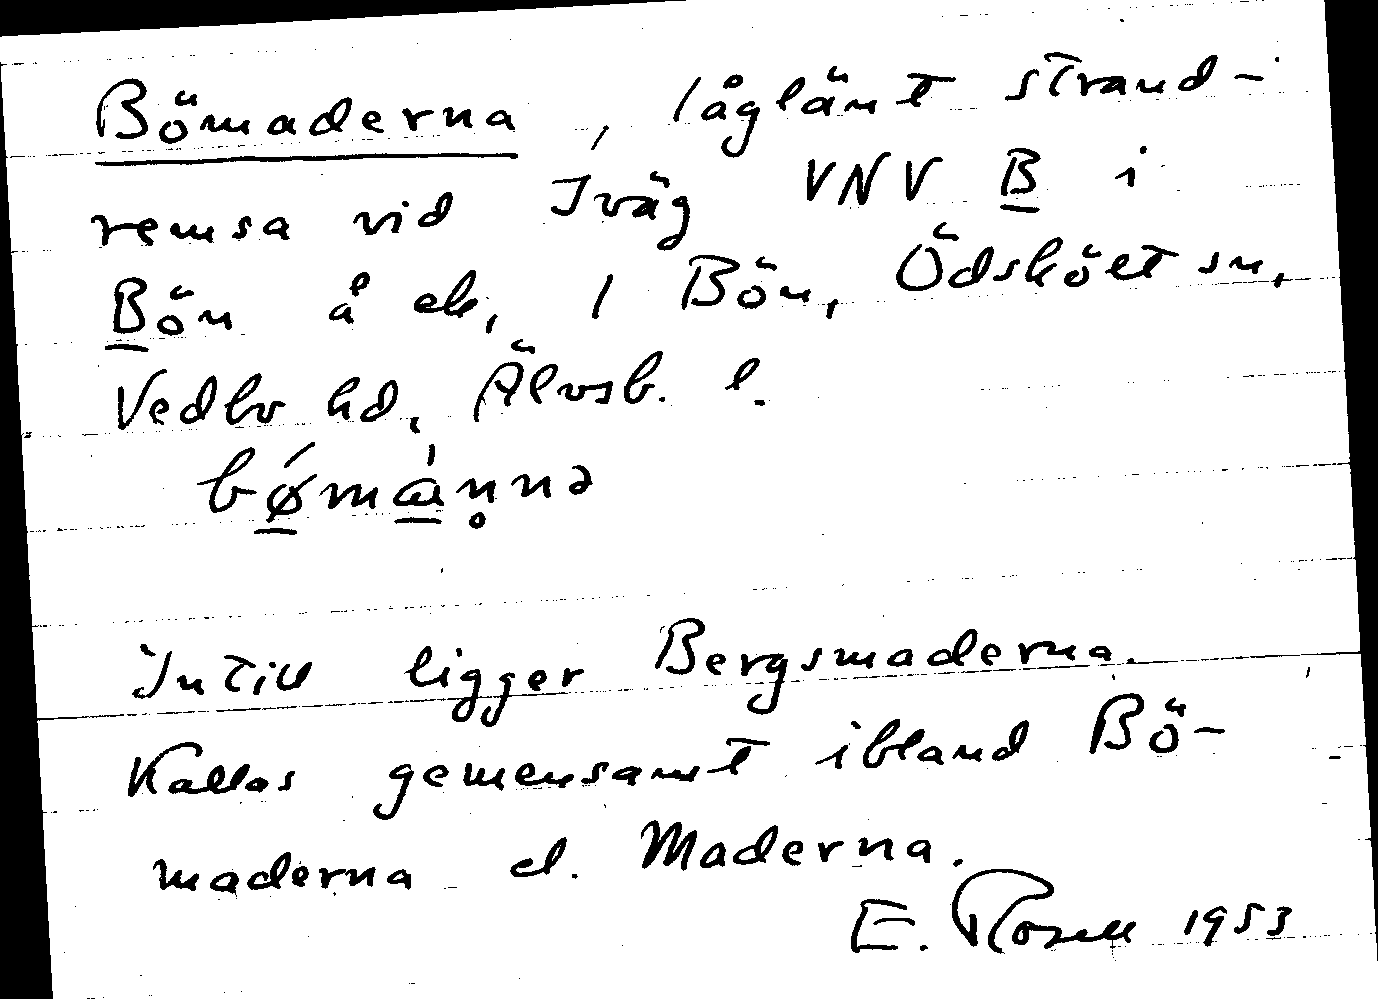 Bömaderna, låglänt strand-
remsa vid Iväg VNV B i
Bön å ek, 1 Bön, Ödsköłt sn,
Vedbo hd, Älvsb. l.
bǿmànnə
Intill ligger Bergsmaderna.
Kallas gemensamt ibland Bö-
maderna el. Maderna.
E. Rosell 1953